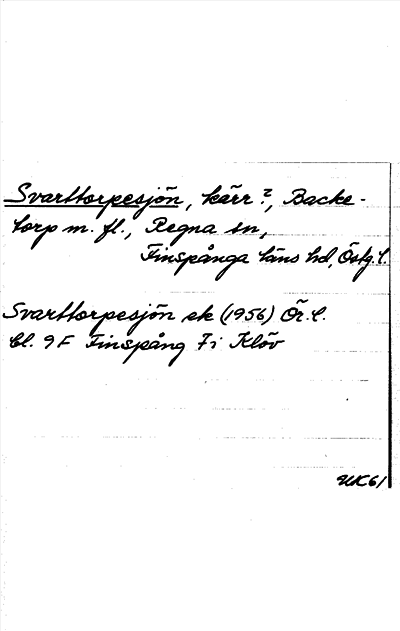 Svarttorpesjön, kärr?, Backe-
torp m. fl., Regna sn,
Finspånga läns hd, Östg. l.
Svarttorpesjön ek (1956) Ör. l.
bl. 9F Finspång 7i Klöv
UK61